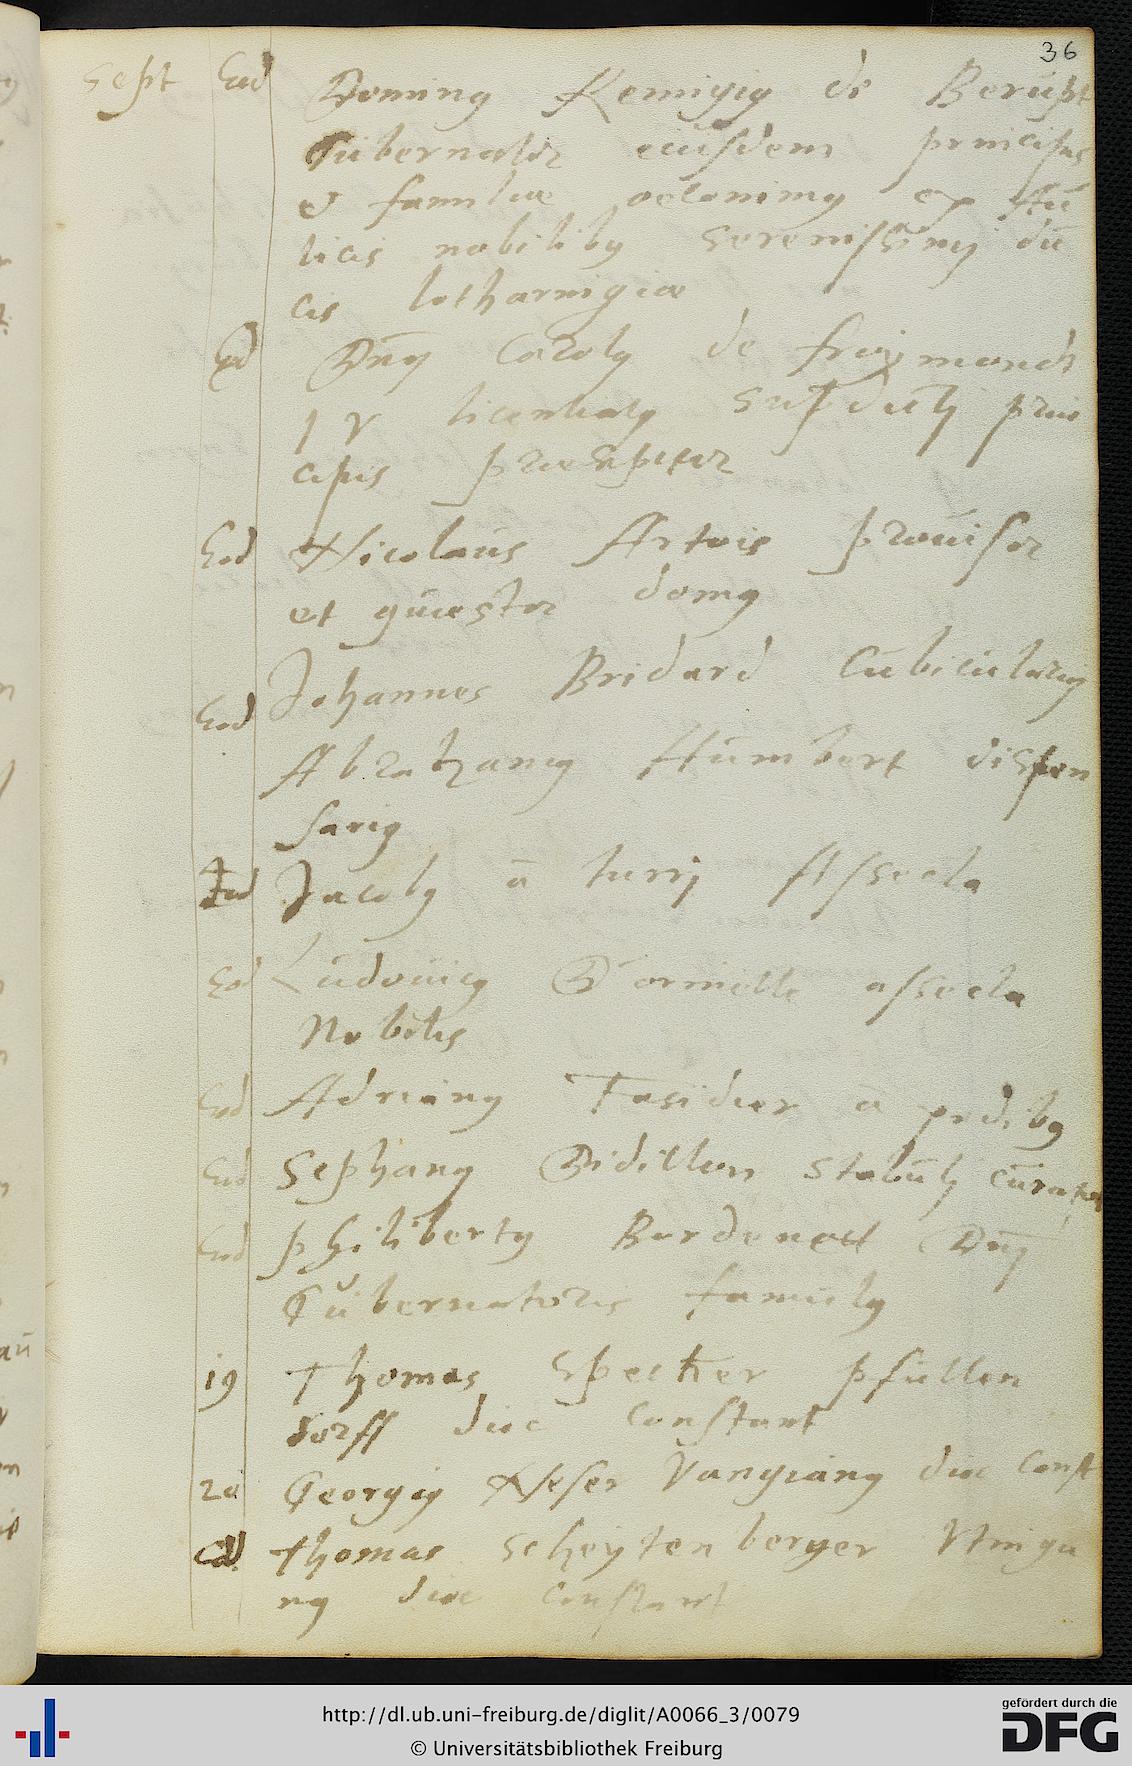 36
Sept Eod Dominꝰ Remigiꝰ de Berupt
Gubernator eiusdem principis
& familiæ oeconimꝰ ex Au
licis nobilibꝰ serenissimj du
cis lotharingiæ
Eod Dnꝰ Carolꝰ de
J V licentiatꝰ prin
cipis præceptor
Eod Nicolaus Artois prouisor
et quæstor domꝰ
Eod Johannes Bridard Cubiculariꝰ
Humbert dispen
sariꝰ
Eod Jacobꝰ a turrj Assecla
Eod Ludouicꝰ assecla
Nobilis
Eod Adrianꝰ a pedibꝰ
Eod Sephanꝰ Didillon stabulj curator
Eod philibertꝰ Dnj
Gubernatoris famulꝰ
19 Thomas Specker pfullen
dorff diœc Constant
20 Georgiꝰ Neser Vangianꝰ diœ Const
Thomas Scheytenberger
nꝰ diœ Constant
http://dl.ub.uni-freiburg.de/diglit/A0066_3/0079
© Universitätsbibliothek Freiburg
gefördert durch die
DFG